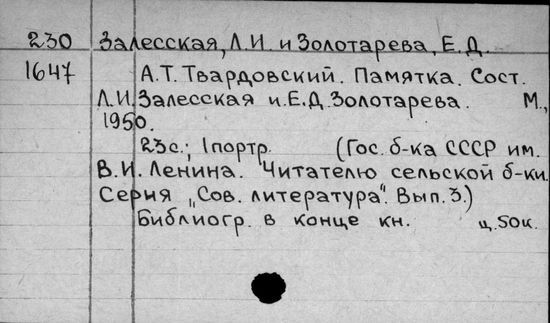 230 Залесская, Л.И. и Золотарева, Е.Д.
1647 А.Т. Твардовский. Памятка. Сост.
Л.И. Залесская и Е.Д. Золотарева. М.,
1950.
23с.; 1портр. (Гос. б-ка СССР им.
В.И. Ленина. Читателю сельской б-ки.
Серия „Сов. литература". Вып. 3.)
Библиогр. в конце кн. ц. 50к.